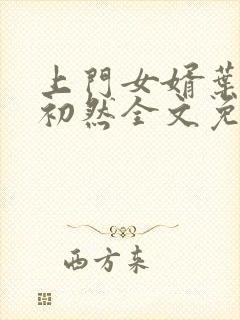 上門女婿葉
初然全文免
西方来